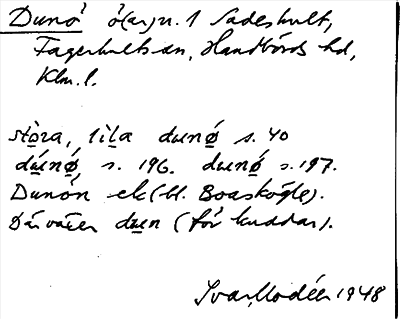 Dunö ö(ar) n. 1 Sadeshult,
Fagerhults sn, Handbörds hd,
Klm. l.
stòra, lìla dunǿ s. 40
dúnǿ, s. 196. dunǿ s. 197.
Dunön ek (bl. Boaskögle).
Där växer dun (för kuddar).
Ivar Modéer 1948